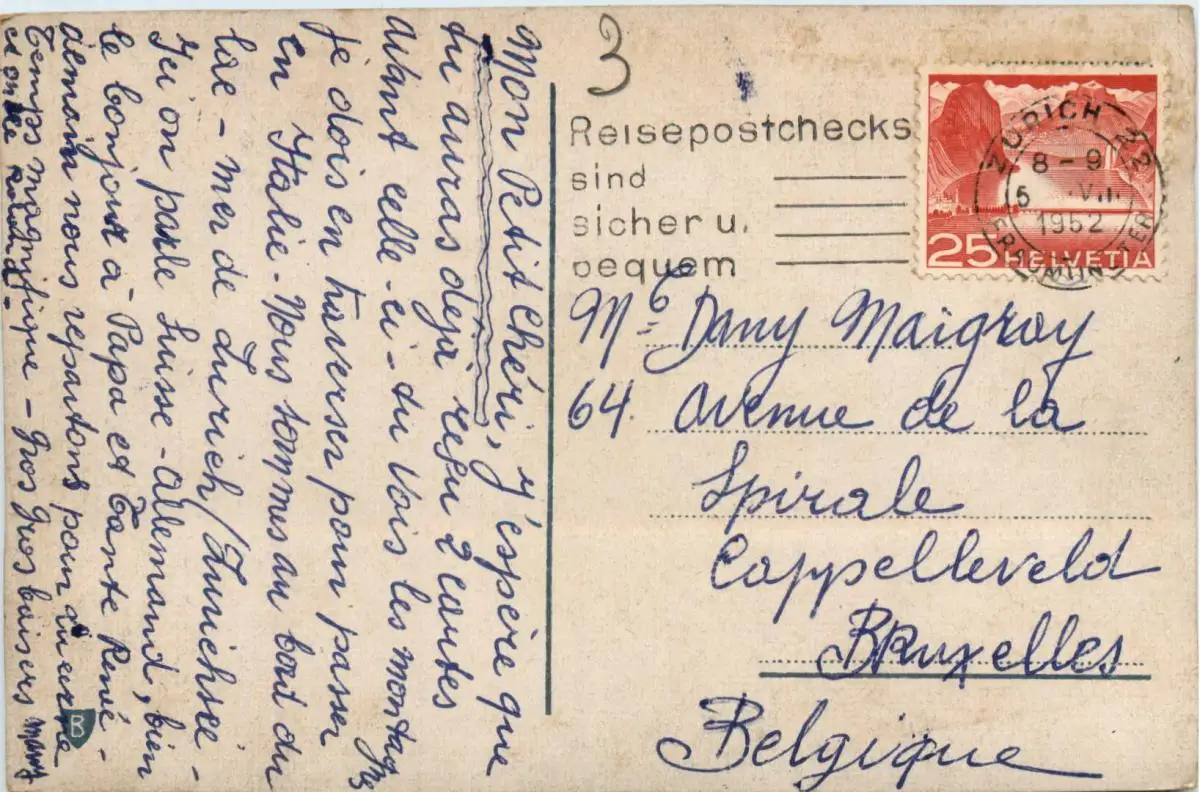 Mon Petit Chéri, j'espère que
tu auras deja reçu 2 cartes
avant celle-ci - tu vois les montagnes
je dois en traverser pour passer
en Italie - Nous sommes au bord du
lac - mer de Zurich/Zurichsee -
Ici on parle Suisse-Allemand, bien
le bonjour à Papa et Tante René -
demain nous repartons pour Lucerne
Temps magnifique - Gros Gros baisers
3
Reisepostchecks
sind
sicher u.
bequem
ZÜRICH 22
8-9
5 VII
1952
FRAUMÜNSTER
25 HELVETIA
Mr Dany Maigray
64. avenue de la
Spirale
Cappelleveld
Bruxelles
Belgique
B